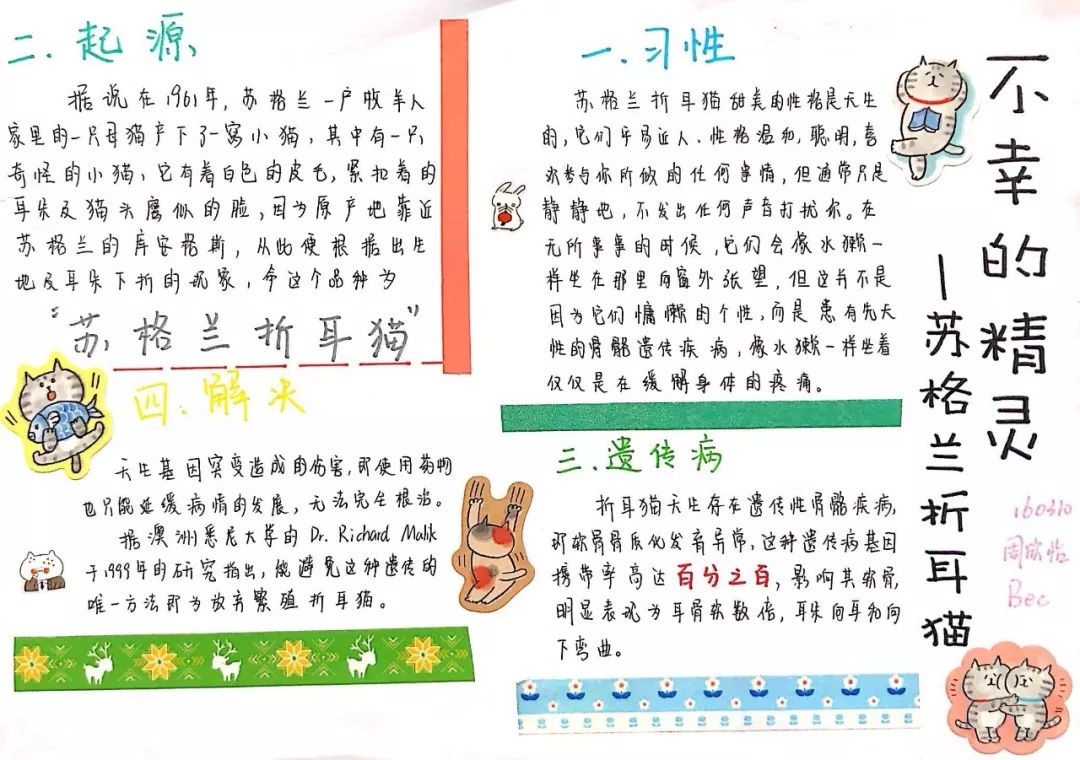 不幸的精灵
—苏格兰折耳猫
一.习性
苏格兰折耳猫甜美的性格是天生
的,它们平易近人、性格温和,聪明,喜
欢参与你所做的任何事情,但通常只是
静静地,不发出任何声音打扰你。在
无所事事的时候,它们会像水獭一
样坐在那里向窗外张望,但这并不是
因为它们慵懒的个性,而是患有先天
性的骨骼遗传疾病,像水獭一样坐着
仅仅是在缓解身体的疼痛。
二.起源
据说在1961年,苏格兰一户牧羊人
家里的一只母猫产下了一窝小猫,其中有一只
奇怪的小猫,它有着白色的皮毛,紧扣着的
耳朵及猫头鹰似的脸,因为原产地靠近
苏格兰的库安格斯,从此便根据出生
地及耳朵下折的现象,命这个品种为
“苏格兰折耳猫”
三.遗传病
折耳猫天生存在遗传性骨骼疾病,
即软骨骨质化发育异常,这种遗传病基因
携带率高达百分之百,影响其软骨,
明显表现为耳骨软数倍,耳朵向耳和向
下弯曲。
四.解决
天生基因突变造成的伤害,即使用药物
也只能延缓病情的发展,无法完全根治。
据澳洲悉尼大学的Dr. Richard Malik
于1999年的研究指出,能避免这种遗传的
唯一方法即为放弃繁殖折耳猫。
160310
周欣怡
Bec